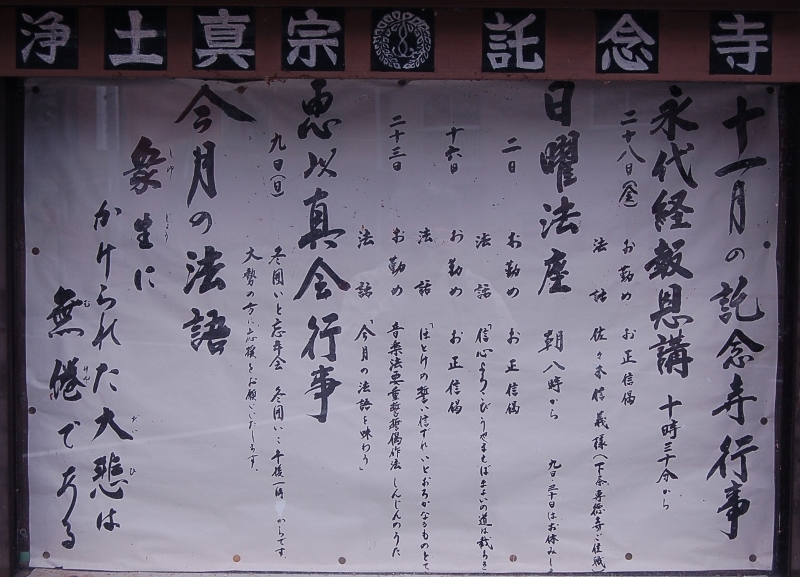 浄土真宗 託念寺
十一月の託念寺行事
永代経報恩講 十時三十分から
二十八日(金) お勤め お正信偈
法話 佐々木信義様
日曜法座 朝八時から 九日、三十日はお休み
二日 お勤め お正信偈
法話 「信心よろこびうやまえば
十六日 お勤め お正信偈
法話 「ほとけの誓い信ずれ
二十三日 お勤め 音楽法要重誓偈作法 しんじんのうた
法話 「今月の法語を味わう」
恵以真会行事
九日(日) 冬囲いと忘年会 冬囲い:午後一時からです
大勢の方に応援をお願いいたします。
今月の法語
衆生に
しゅ じょう
かけられた大悲は
だい ひ
無倦である
む けん